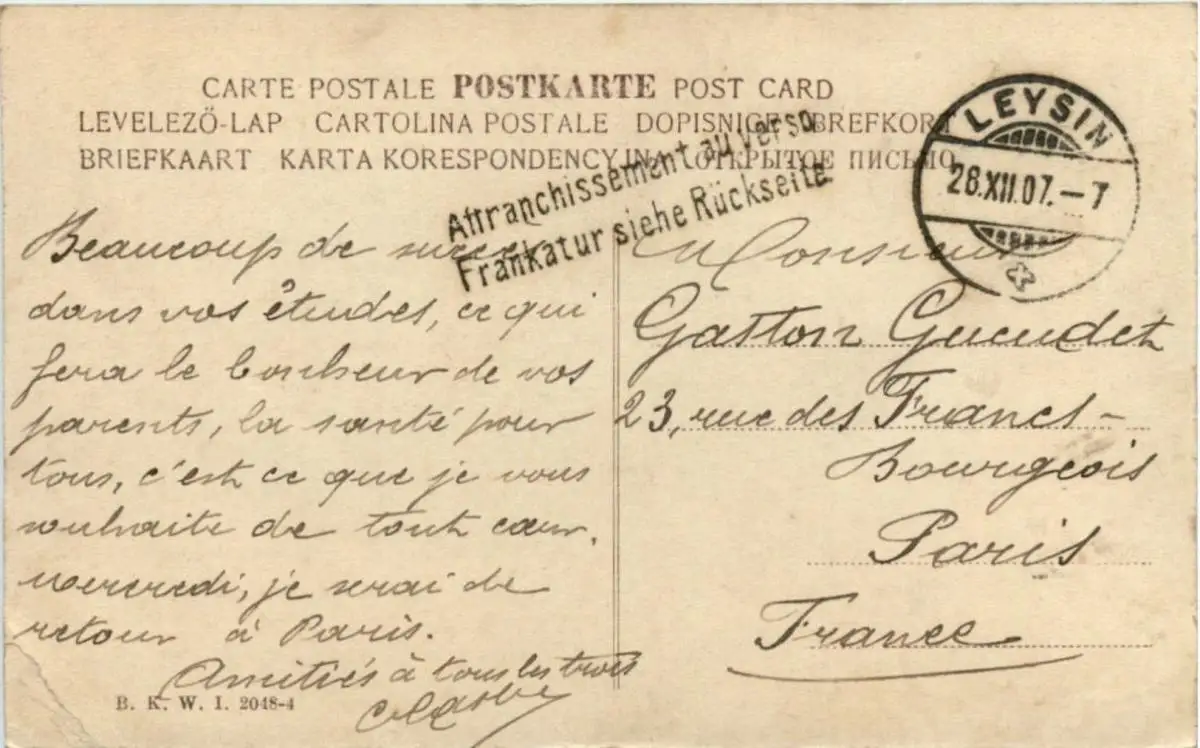 CARTE POSTALE POSTKARTE POST CARD
LEVELEZŐ-LAP CARTOLINA POSTALE DOPISNICE BREFKORT
BRIEFKAART KARTA KORESPONDENCYJNA ОТКРЫТОЕ ПИСЬМО
Affranchissement au verso
Frankatur siehe Rückseite
LEYSIN
28.XII.07.-7
Beaucoup de succès
dans vos études, ce qui
fera le bonheur de vos
parents, la santé pour
tous, c'est ce que je vous
souhaite de tout cœur.
Mercredi, je serai de
retour à Paris.
Amitiés à tous les trois
Monsieur
Gaston Gueudet
23, rue des Francs-
Bourgeois
Paris
France
B. K. W. I. 2048-4